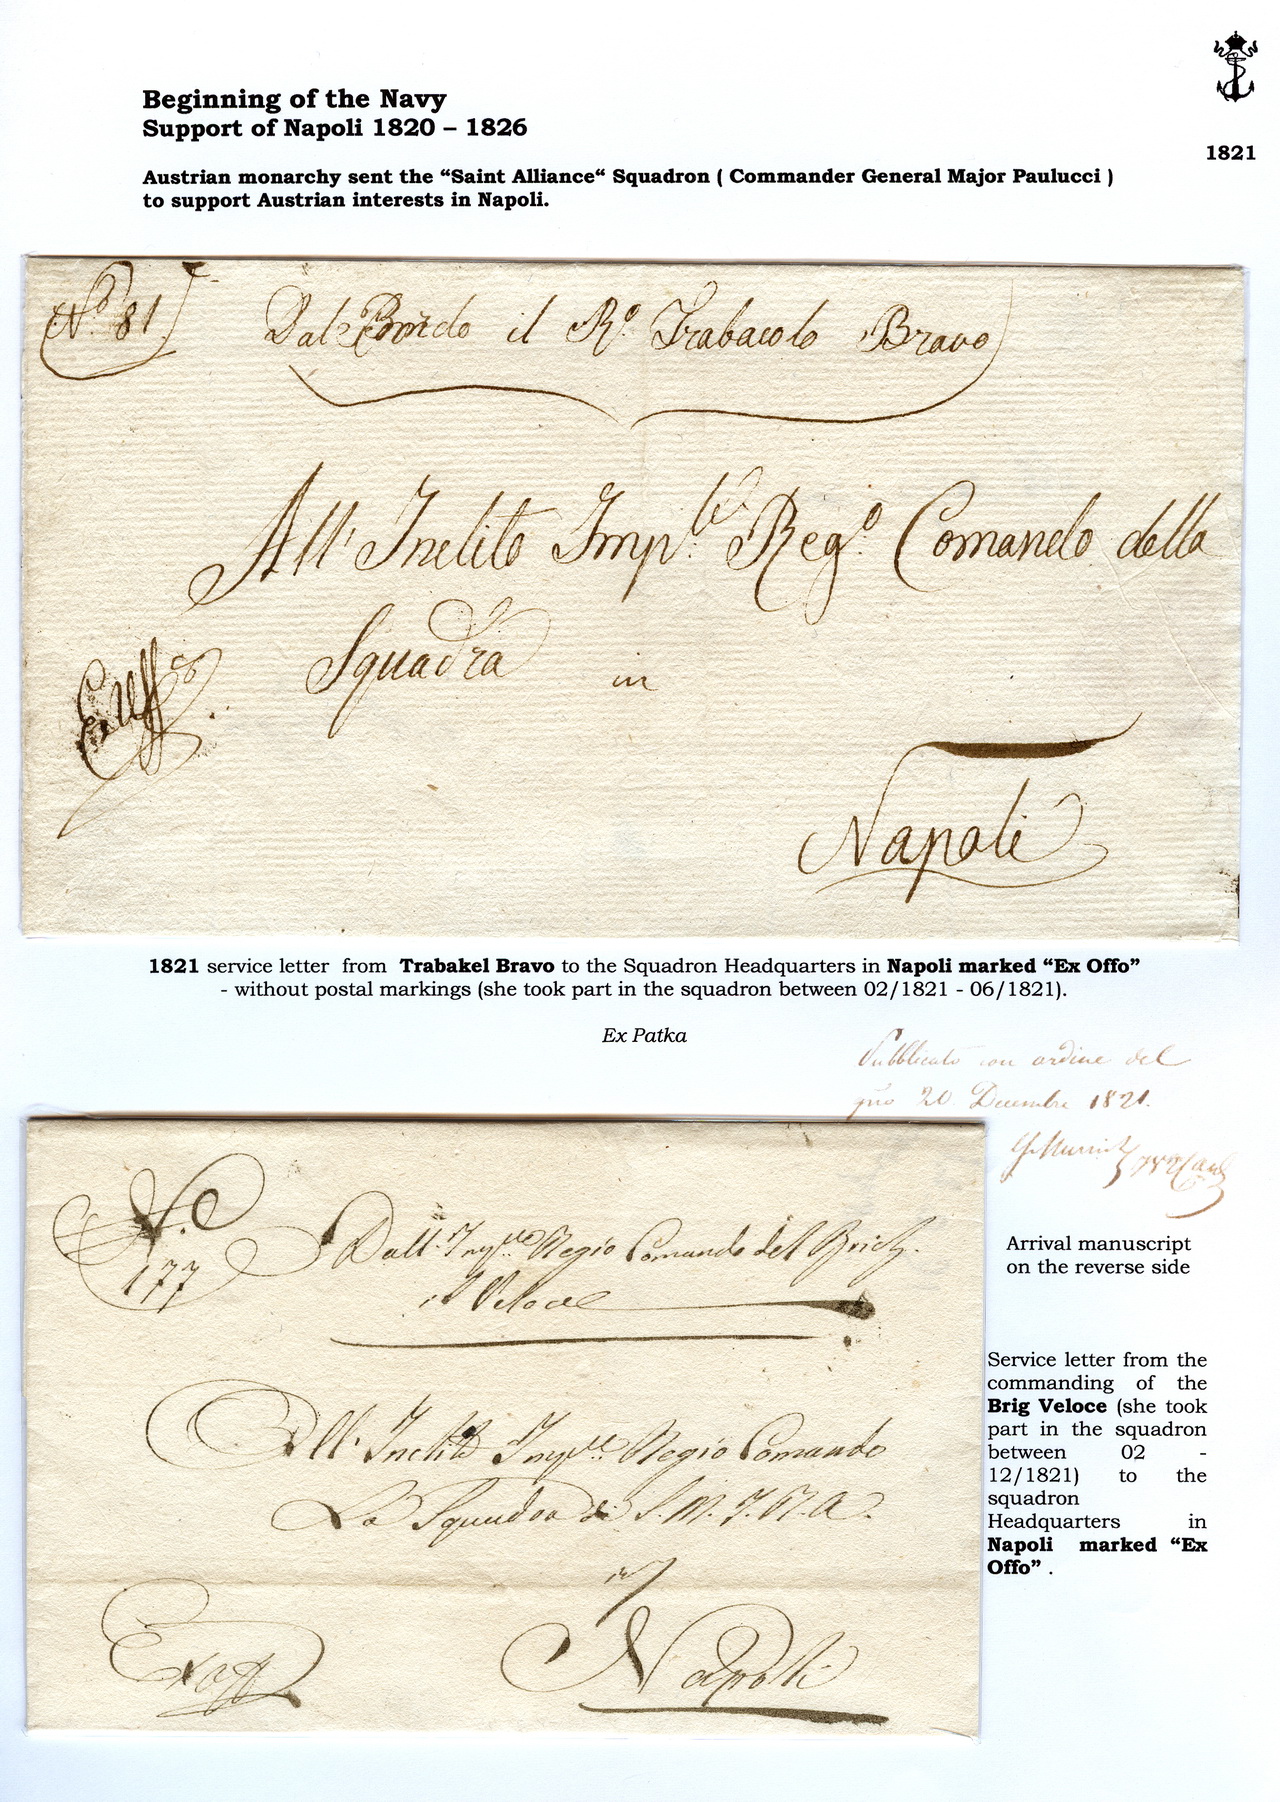 Beginning of the Navy
Support of Napoli 1820 – 1826
1821
Austrian monarchy sent the “Saint Alliance“ Squadron ( Commander General Major Paulucci )
to support Austrian interests in Napoli.
No. 81
Dal Bordo il Ro. Trabacolo Bravo
All' Inclito Imple. Rego. Comando della
Squadra in
Ex Uffo
Napoli
1821 service letter from Trabakel Bravo to the Squadron Headquarters in Napoli marked “Ex Offo”
- without postal markings (she took part in the squadron between 02/1821 - 06/1821).
Ex Patka
Pubblicato con ordine del
20 Decembre 1821.
Arrival manuscript
on the reverse side
No
177
Dall' Imple Regio Comando del Brick
il Veloce
All' Inclito Imple Regio Comando
La Squadra di S. M. I. R. A.
in
Exoff
Napoli
Service letter from the
commanding of the
Brig Veloce (she took
part in the squadron
between 02 -
12/1821) to the
squadron
Headquarters in
Napoli marked “Ex
Offo” .